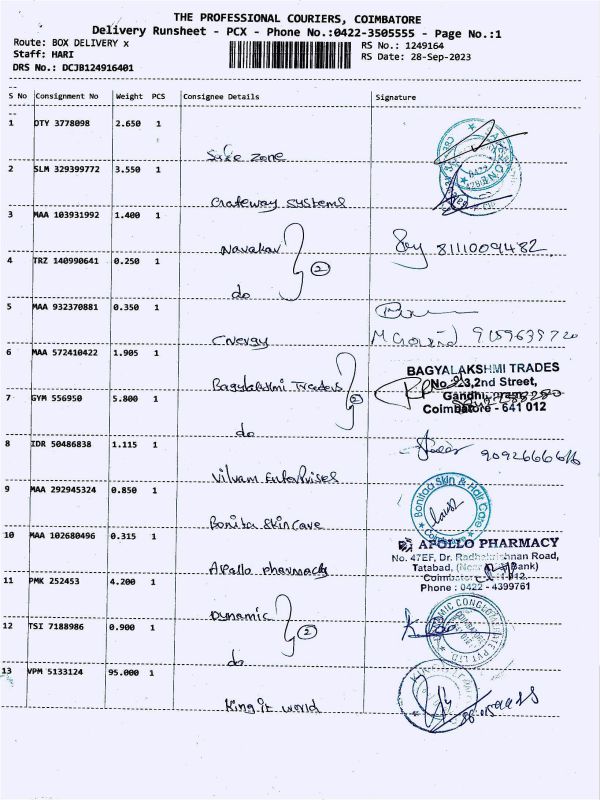 THE PROFESSIONAL COURIERS, COIMBATORE
Delivery Runsheet - PCX - Phone No.:0422-3505555 - Page No.:1
Route: BOX DELIVERY x
Staff: HARI
DRS No.: DCJB124916401
RS No.: 1249164
RS Date: 28-Sep-2023
S No Consignment No Weight PCS Consignee Details Signature
1 DTY 3778098 2.650 1
Size zone
2 SLM 329399772 3.550 1
Gateway systems
3 MAA 103931992 1.400 1
Navakar
8111009482
4 TRZ 140990641 0.250 1
②
do
5 MAA 932370881 0.350 1
Energy
9159639720
6 MAA 572410422 1.905 1
Bagyalakshmi Traders
BAGYALAKSHMI TRADES
2nd Street,
Coimbatore - 641 012
7 GYM 556950 5.800 1
②
do
8 IDR 50486838 1.115 1
Vilvam Enterprises
9 MAA 292945324 0.850 1
Bonita Skin Care
Bonitaa Skin & Hair Care
10 MAA 102680496 0.315 1
Apollo pharmacy
APOLLO PHARMACY
No. 47EF, Dr. Radhakrishnan Road,
Tatabad,
Phone : 0422 - 4399761
11 PMK 252453 4.200 1
Dynamic
12 TSI 7188986 0.900 1
②
do
13 VPM 5133124 95.000 1
King it world